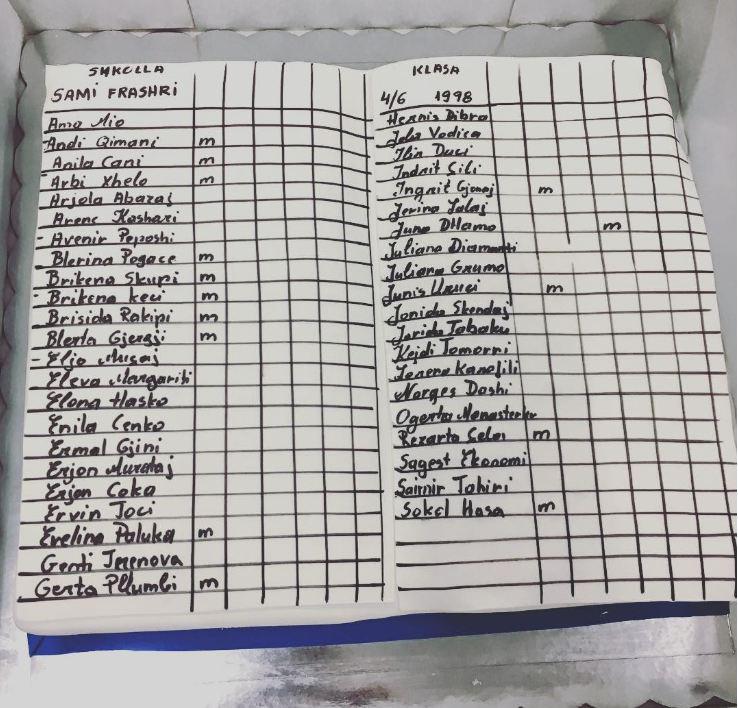 SHKOLLA
SAMI FRASHRI
Ama Mio
Andi Qimani m
Anila Cani m
Arbi Xhelo m
Arjola Abazaj
Arenc Kashari
- Avenir Peposhi
Blerina Pogace m
Brikena Skupi m
- Brikena Keci m
Brisida Rakipi m
Blerta Gjergji m
- Elio Musaj
Eleva Margariti
Elona Hasko
Enila Cenko
Ermal Gjini
Erjon Murataj
Erjon Coka
Ervin Joci
Evelina Paluka m
Genti Jerenova
Gerta Pllumbi m
KLASA
4/6 1998
Hernis Dibra
Jola Vodica
Ilir Duci
Indrit Cili
Ingrit Gjonaj m
Jerina Lalaj
Juna DHamo m
Juliana Diamanti
Juliana Grumo
Junis m
Jonida Skendaj
Jorida Tabaku
Kejdi Tomorri
Kanojili
Narges Dashi
Ogerta Menasterler
Rexarta Celoi m
Sagest Ekonomi
Saimir Tahiri
Sokol Hasa m